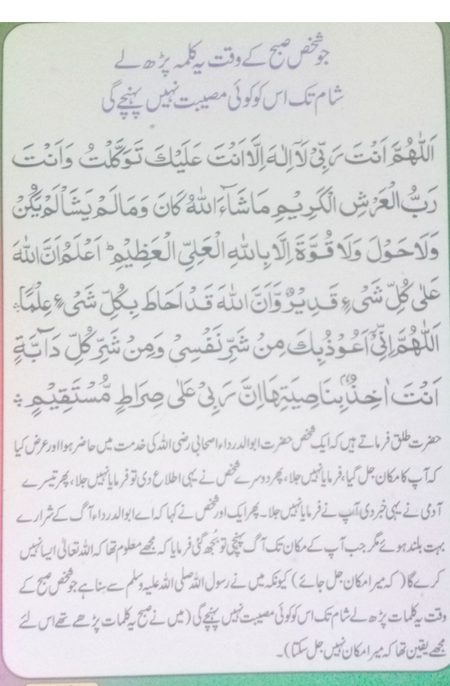 جو شخص صبح کے وقت یہ کلمہ پڑھ لے
شام تک اس کو کوئی مصیبت نہیں پہنچے گی
اَللّٰهُمَّ اَنْتَ رَبِّیْ لَاۤ اِلٰهَ اِلَّا اَنْتَ عَلَیْكَ تَوَكَّلْتُ وَاَنْتَ
رَبُّ الْعَرْشِ الْكَرِیْمِ مَا شَآءَ اللّٰهُ كَانَ وَمَا لَمْ یَشَأْ لَمْ یَكُنْ
وَلَا حَوْلَ وَلَا قُوَّةَ اِلَّا بِاللّٰهِ الْعَلِیِّ الْعَظِیْمِ ؕ اَعْلَمُ اَنَّ اللّٰهَ
عَلٰی كُلِّ شَیْءٍ قَدِیْرٌ وَّاَنَّ اللّٰهَ قَدْ اَحَاطَ بِكُلِّ شَیْءٍ عِلْمًا
اَللّٰهُمَّ اِنِّیْۤ اَعُوْذُ بِكَ مِنْ شَرِّ نَفْسِیْ وَمِنْ شَرِّ كُلِّ دَآبَّةٍ
اَنْتَ اٰخِذٌۢ بِنَاصِیَتِهَا اِنَّ رَبِّیْ عَلٰی صِرَاطٍ مُّسْتَقِیْمٍ
حضرت طلق فرماتے ہیں کہ ایک شخص حضرت ابوالدرداء صحابی رضی اللہ کی خدمت میں حاضر ہوا اور عرض کیا
کہ آپ کا مکان جل گیا، فرمایا نہیں جلا، پھر دوسرے شخص نے یہی اطلاع دی تو فرمایا نہیں جلا، پھر تیسرے
آدمی نے یہی خبر دی آپ نے فرمایا نہیں جلا۔ پھر ایک اور شخص نے کہا کہ اے ابوالدرداء آگ کے شرارے
بہت بلند ہوئے مگر جب آپ کے مکان تک آگ پہنچی تو بجھ گئی فرمایا کہ مجھے معلوم تھا کہ اللہ تعالیٰ ایسا نہیں
کرے گا (کہ میرا مکان جل جائے) کیونکہ میں نے رسول اللہ صلی اللہ علیہ وسلم سے سنا ہے جو شخص صبح کے
وقت یہ کلمات پڑھ لے شام تک اس کو کوئی مصیبت نہیں پہنچے گی (میں نے صبح یہ کلمات پڑھے تھے اس لئے
مجھے یقین تھا کہ میرا مکان نہیں جل سکتا)۔